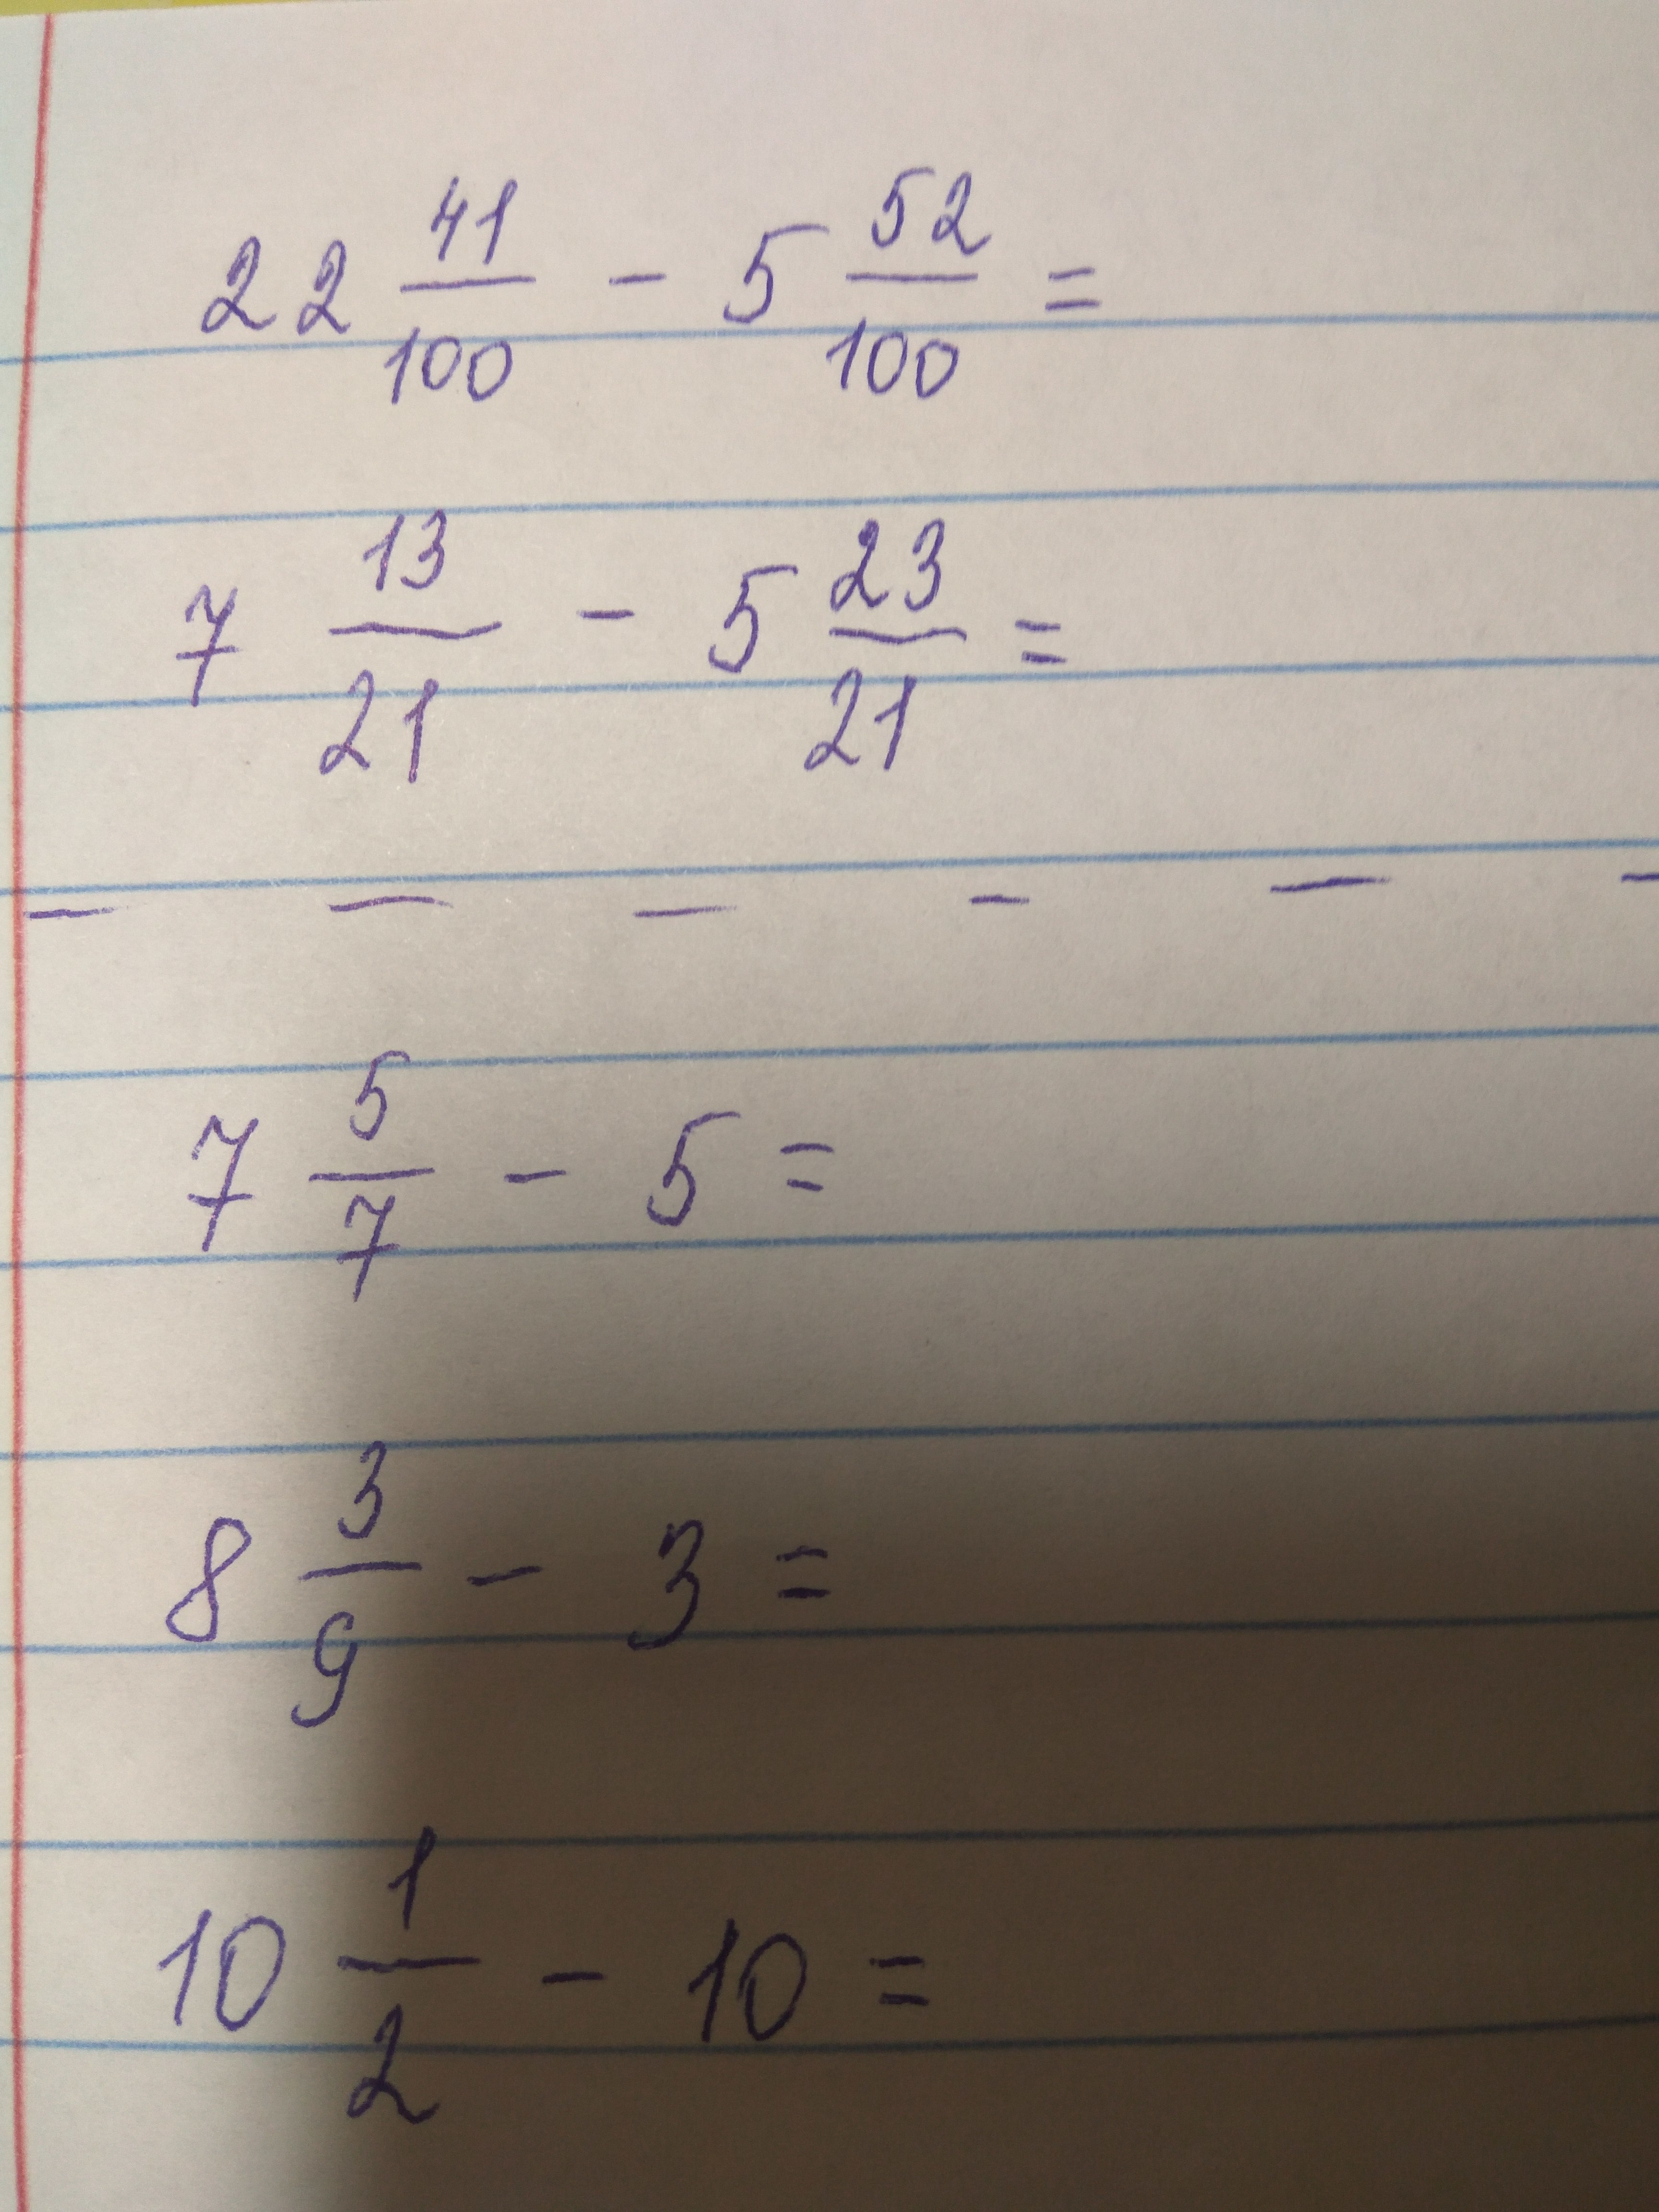 22 41/100 - 5 52/100 =
7 13/21 - 5 23/21 =
- - - - - -
7 5/7 - 5 =
8 3/9 - 3 =
10 1/2 - 10 =